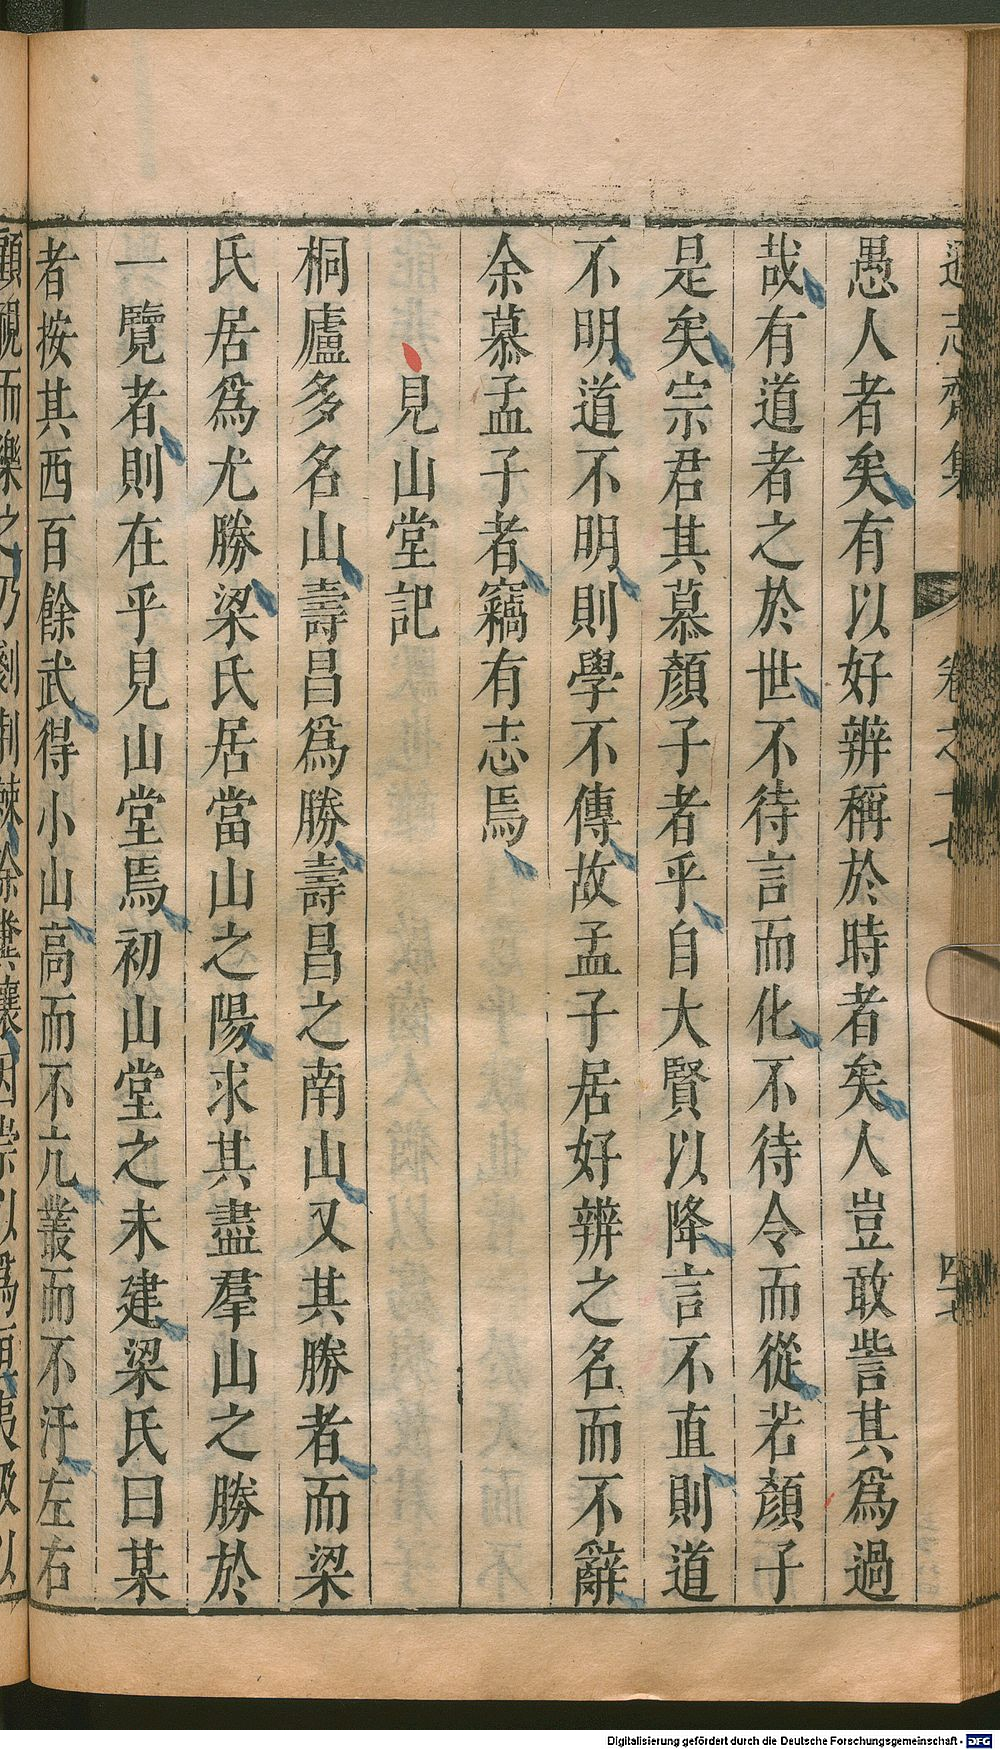 遜志齋集 卷之十七 四十七
愚人者矣有以好辨稱於時者矣人豈敢訾其爲過
哉有道者之於世不待言而化不待令而從若顏子
是矣宗君其慕顏子者乎自大賢以降言不直則道
不明道不明則學不傳故孟子居好辨之名而不辭
余慕孟子者竊有志焉
見山堂記
桐廬多名山壽昌爲勝壽昌之南山又其勝者而梁
氏居爲尤勝梁氏居當山之陽求其盡羣山之勝於
一覽者則在乎見山堂焉初山堂之未建梁氏曰某
者按其西百餘武得小山高而不亢叢而不汙左右
顧視而樂之乃剗荆棘除糞壤因崇以爲夷級以
Digitalisierung gefördert durch die Deutsche Forschungsgemeinschaft - DFG